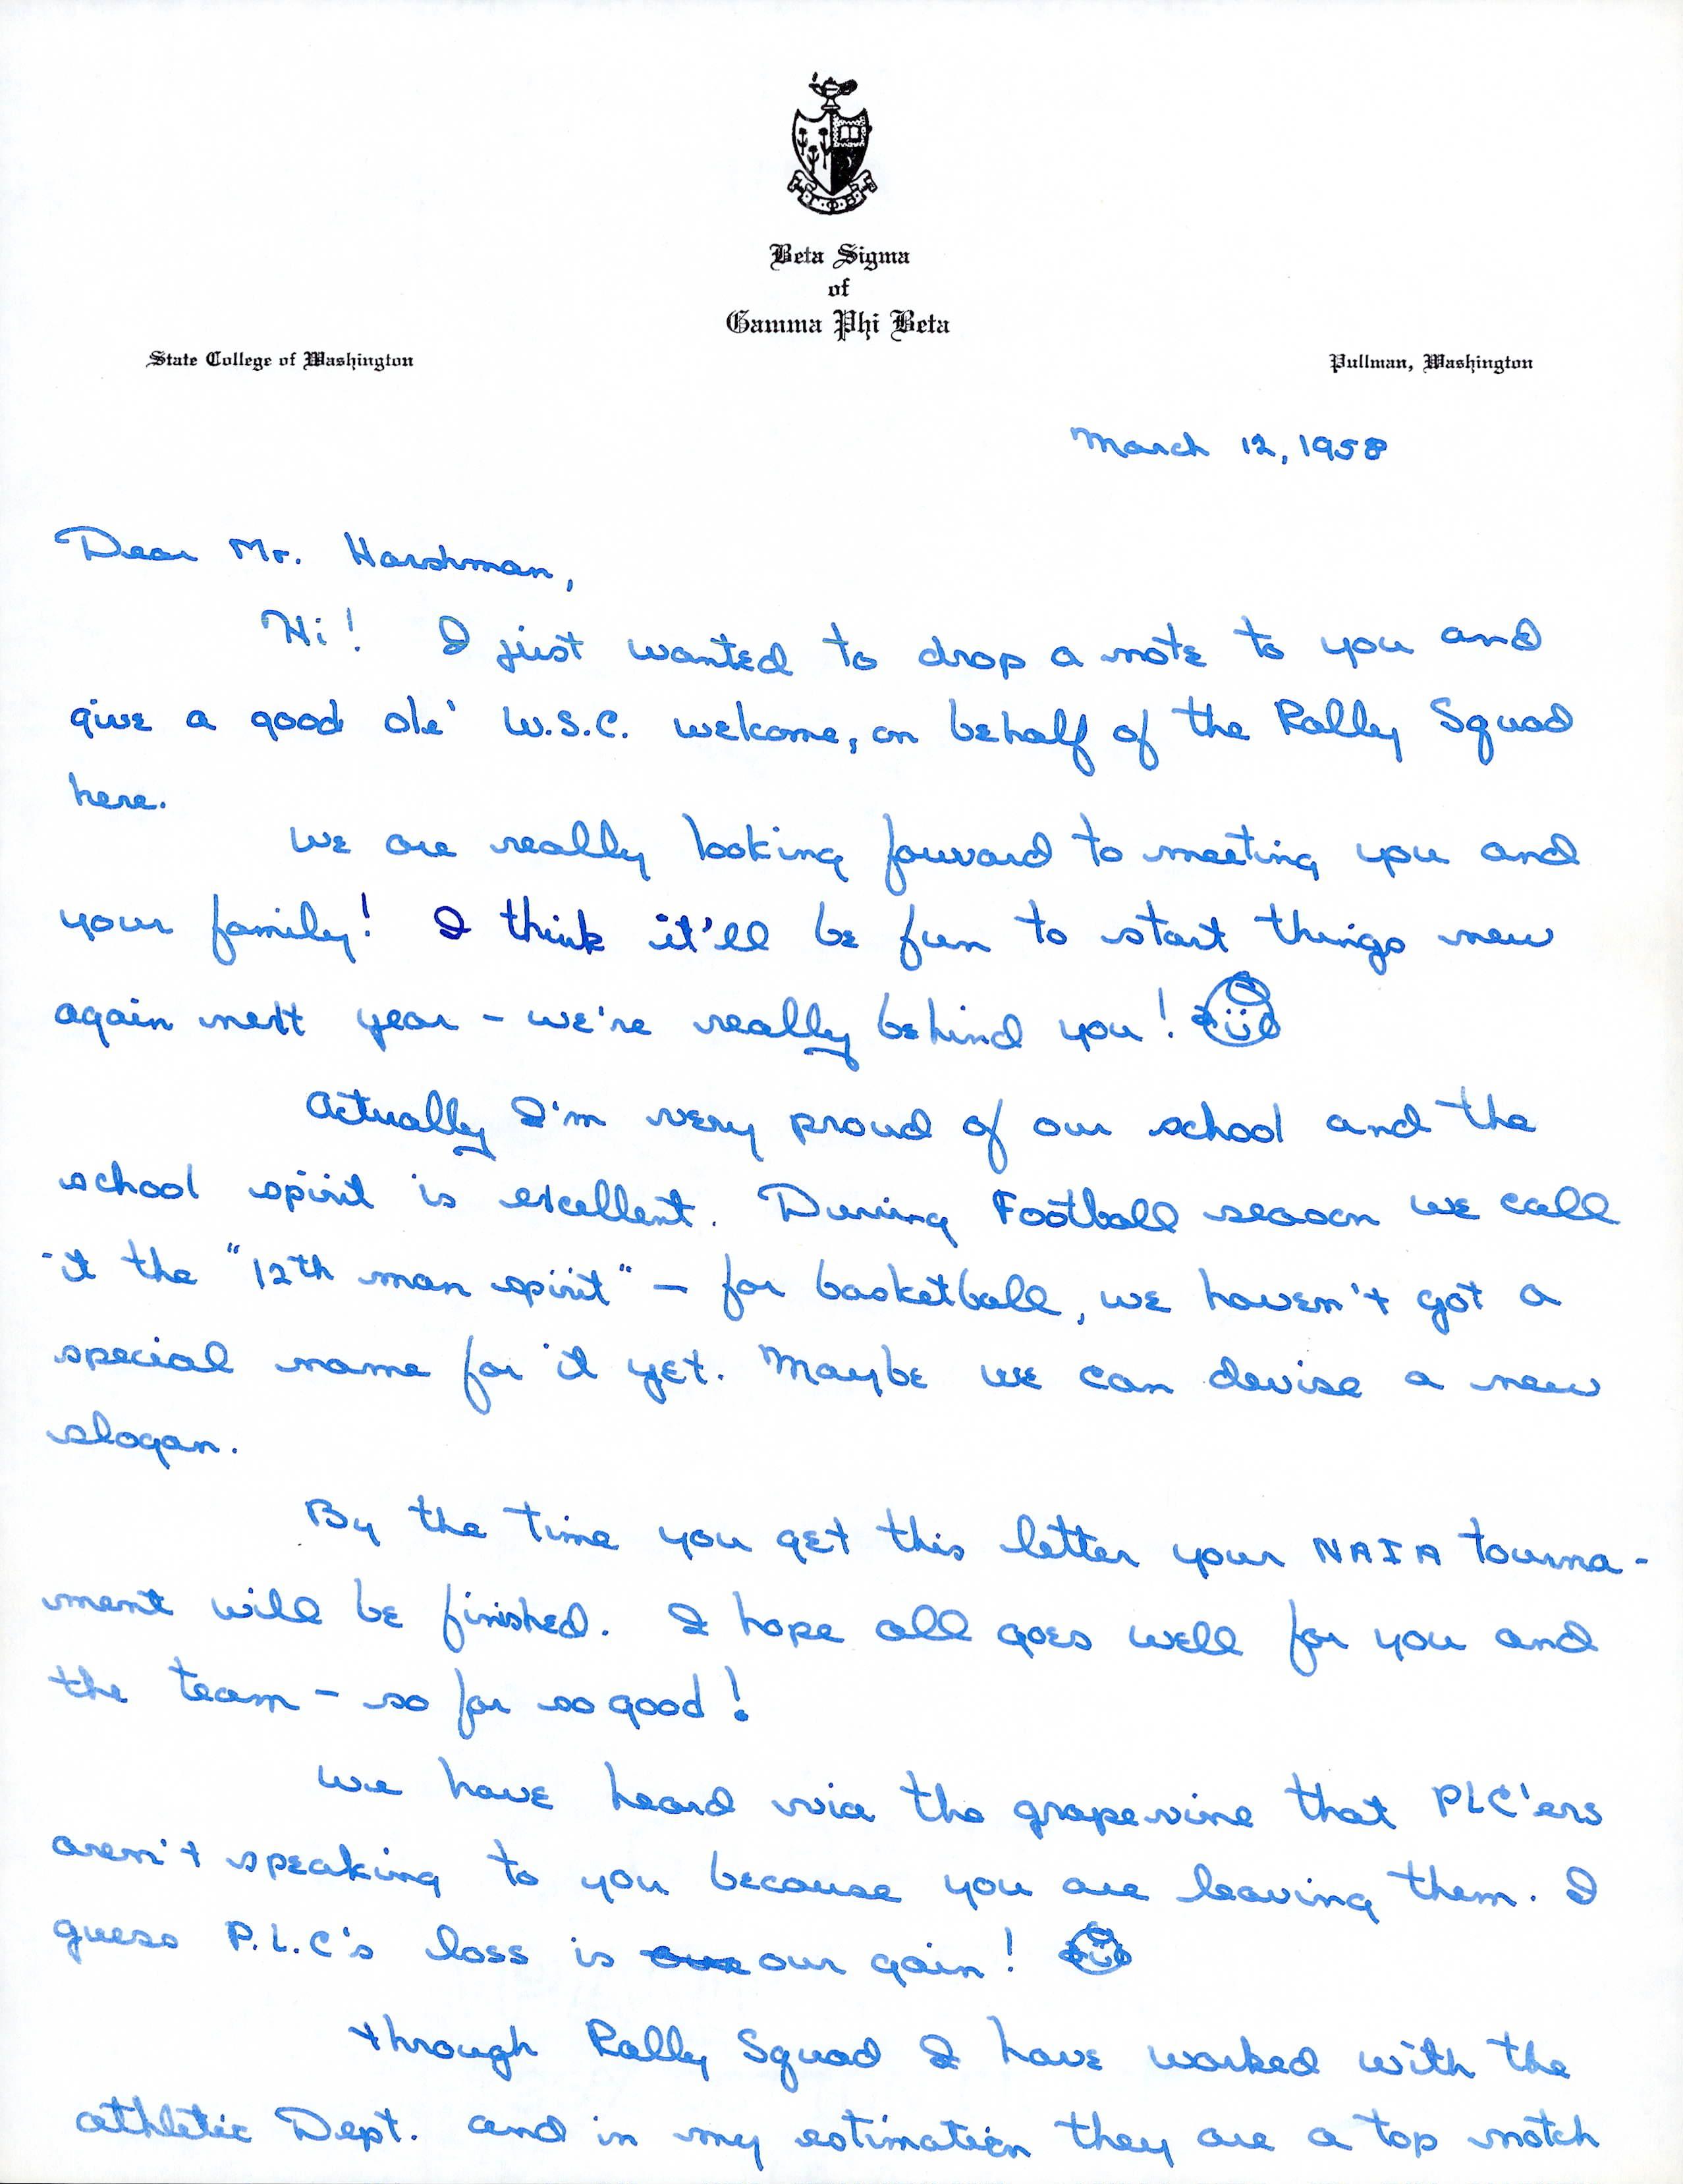 Γ·Φ·Β
Beta Sigma
of
Gamma Phi Beta
State College of Washington
Pullman, Washington
March 12, 1958
Dear Mr. Harshman,
Hi! I just wanted to drop a note to you and
give a good ole' W.S.C. welcome, on behalf of the Rally Squad
here.
We are really looking forward to meeting you and
your family! I think it'll be fun to start things new
again next year - we're really behind you!
Actually I'm very proud of our school and the
school spirit is excellent. During Football season we call
it the "12th man spirit" - for basketball, we haven't got a
special name for it yet. Maybe we can devise a new
slogan.
By the time you get this letter your NAIA tourna-
ment will be finished. I hope all goes well for you and
the team - so far so good!
We have heard via the grapevine that PLC'ers
aren't speaking to you because you are leaving them. I
guess P.L.C's loss is our gain!
Through Rally Squad I have worked with the
athletic Dept. and in my estimation they are a top notch